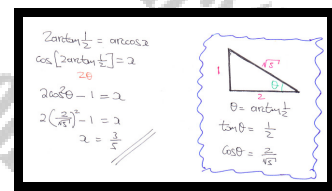 2arctan 1/2 = arccosx
cos[2arctan 1/2] = x
2θ
2cos²θ - 1 = x
2(2/√5)² - 1 = x
x = 3/5
√5
1
θ
2
θ = arctan 1/2
tanθ = 1/2
cosθ = 2/√5